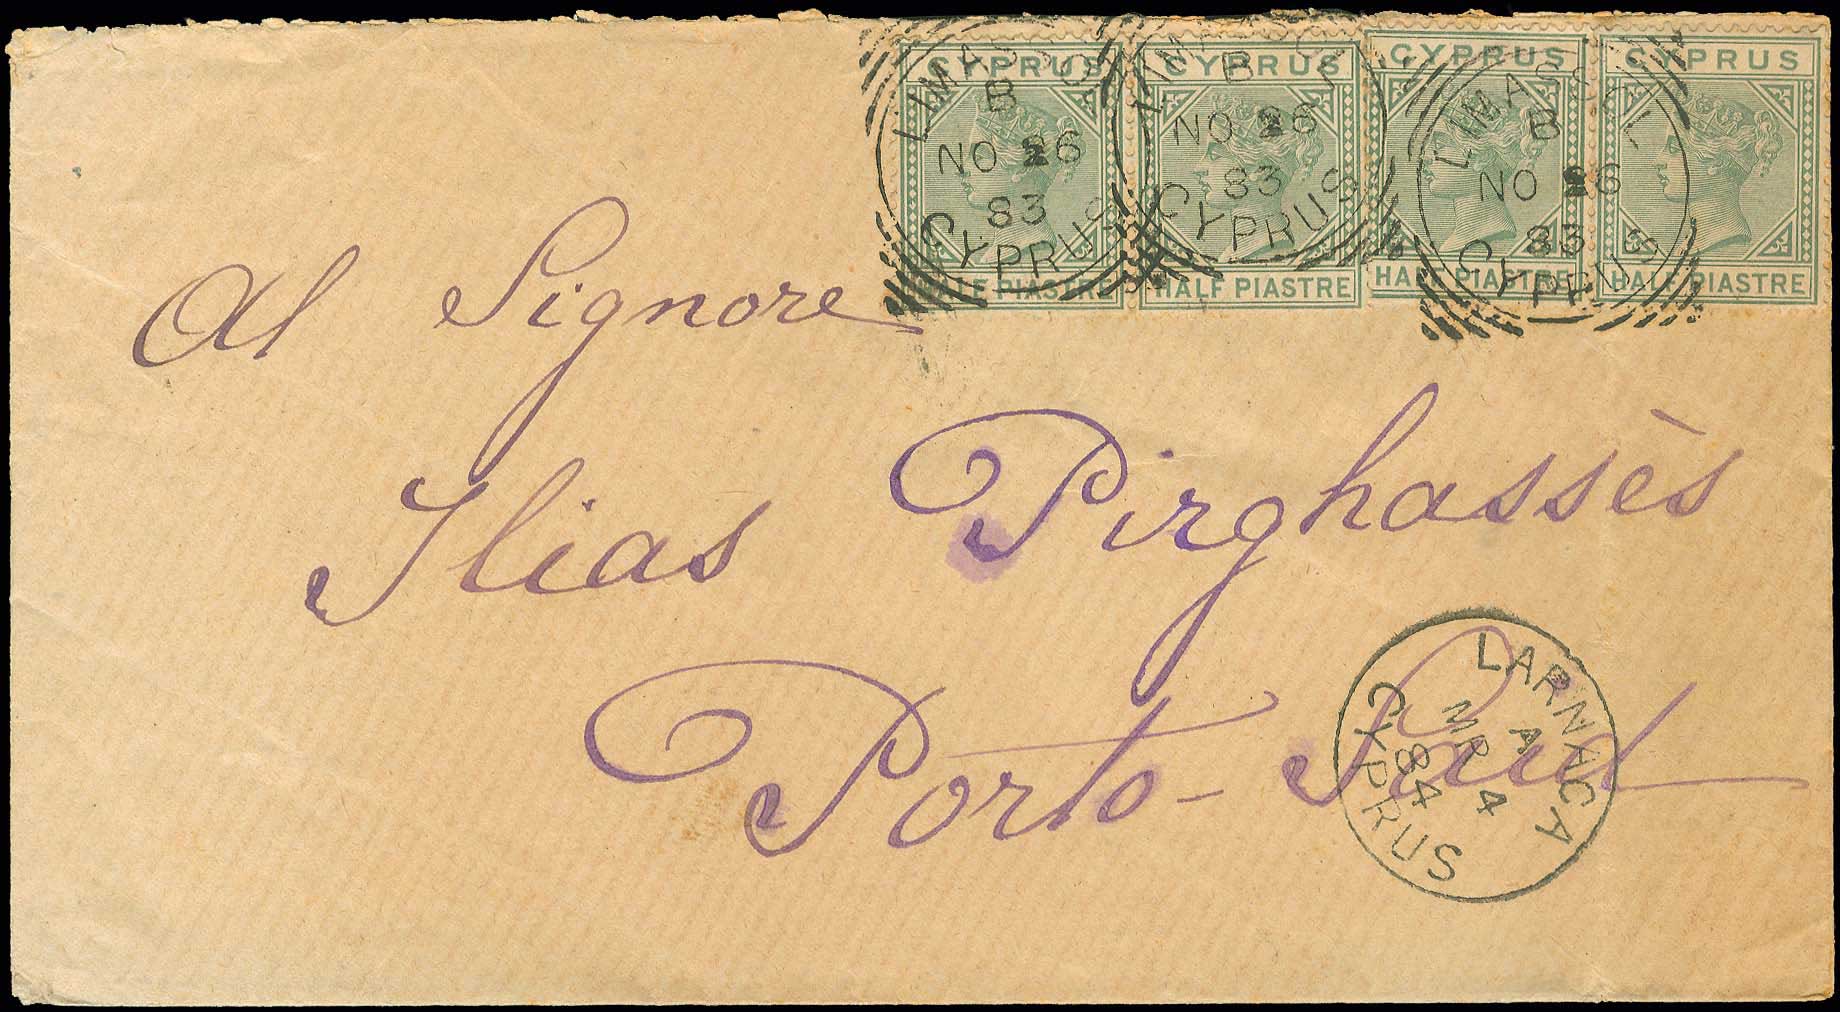 CYPRUS CYPRUS CYPRUS CYPRUS
HALF PIASTRE HALF PIASTRE HALF PIASTRE HALF PIASTRE
LIMASSOL
B
NO 26
83
CYPRUS
LIMASSOL
B
NO 26
83
CYPRUS
LIMASSOL
B
NO 26
83
CYPRUS
Al Signore
Ilias Pirghassès
Porto-Said
LARNACA
A
MR 4
84
CYPRUS